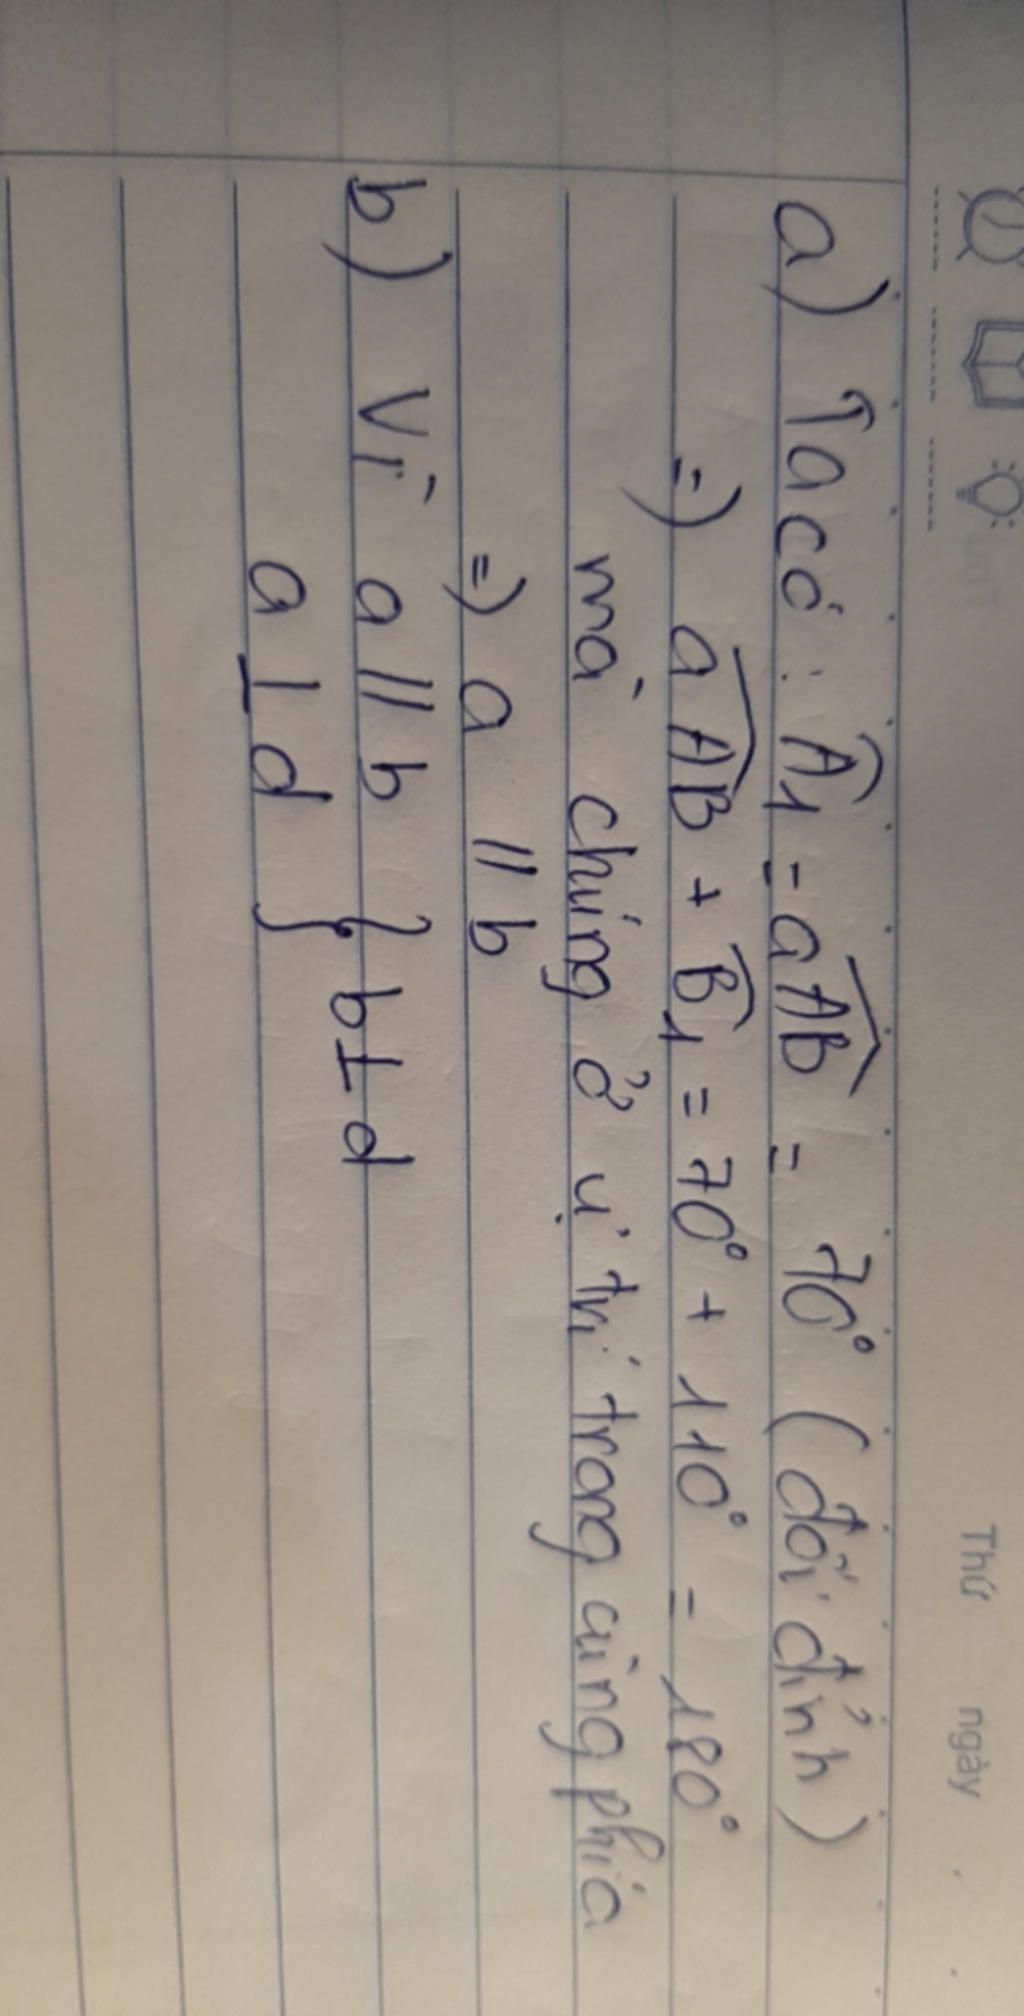 Thứ ngày
a) Ta có: Â₁ = aÂB = 70° (đối đỉnh)
=) aÂB + B̂₁ = 70° + 110° = 180°
mà chúng ở vị trí trong cùng phía
=) a // b
b) Vì a // b } b⊥d
a⊥d